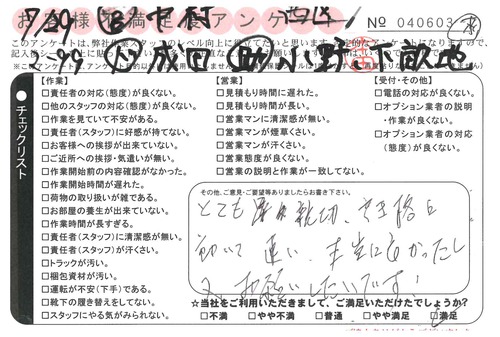 お客様不満足度アンケート
No 040603
7/29 中村 西区
このアンケートは、弊社作業スタッフのレベル向上に役立てたいと思います。
成田 小野 下
チェックリスト
【作業】
□責任者の対応(態度)が良くない。
□他のスタッフの対応(態度)が良くない。
□作業を見ていて不安がある。
□責任者(スタッフ)に好感が持てない。
□お客様への挨拶が出来ていない。
□ご近所への挨拶・気遣いが無い。
□作業開始前の内容確認がなかった。
□作業開始時間が遅れた。
□荷物の取り扱いが雑である。
□お部屋の養生が出来ていない。
□作業時間が長すぎる。
□責任者(スタッフ)に清潔感が無い。
□責任者(スタッフ)が汗くさい。
□トラックが汚い。
□梱包資材が汚い。
□運転が不安(下手)である。
□靴下の履き替えをしてない。
□スタッフにやる気がみられない。
【営業】
□見積もり時間に遅れた。
□見積もり時間が長い。
□営業マンに清潔感が無い。
□営業マンが煙草くさい。
□営業マンが汗くさい。
□営業態度が良くない。
□営業の説明と作業が一致してない。
【受付・その他】
□電話の対応が良くない。
□オプション業者の説明
・作業が良くない。
□オプション業者の対応
(態度)が良くない。
その他、ご意見・ご要望等ありましたらお書き下さい。
とても 親切、
動いて 速い、本当に良かったし
又、お願いしたいです!
☆当社をご利用いただきまして、ご満足いただけたでしょうか?
□不満 □やや不満 □普通 □やや満足 □満足